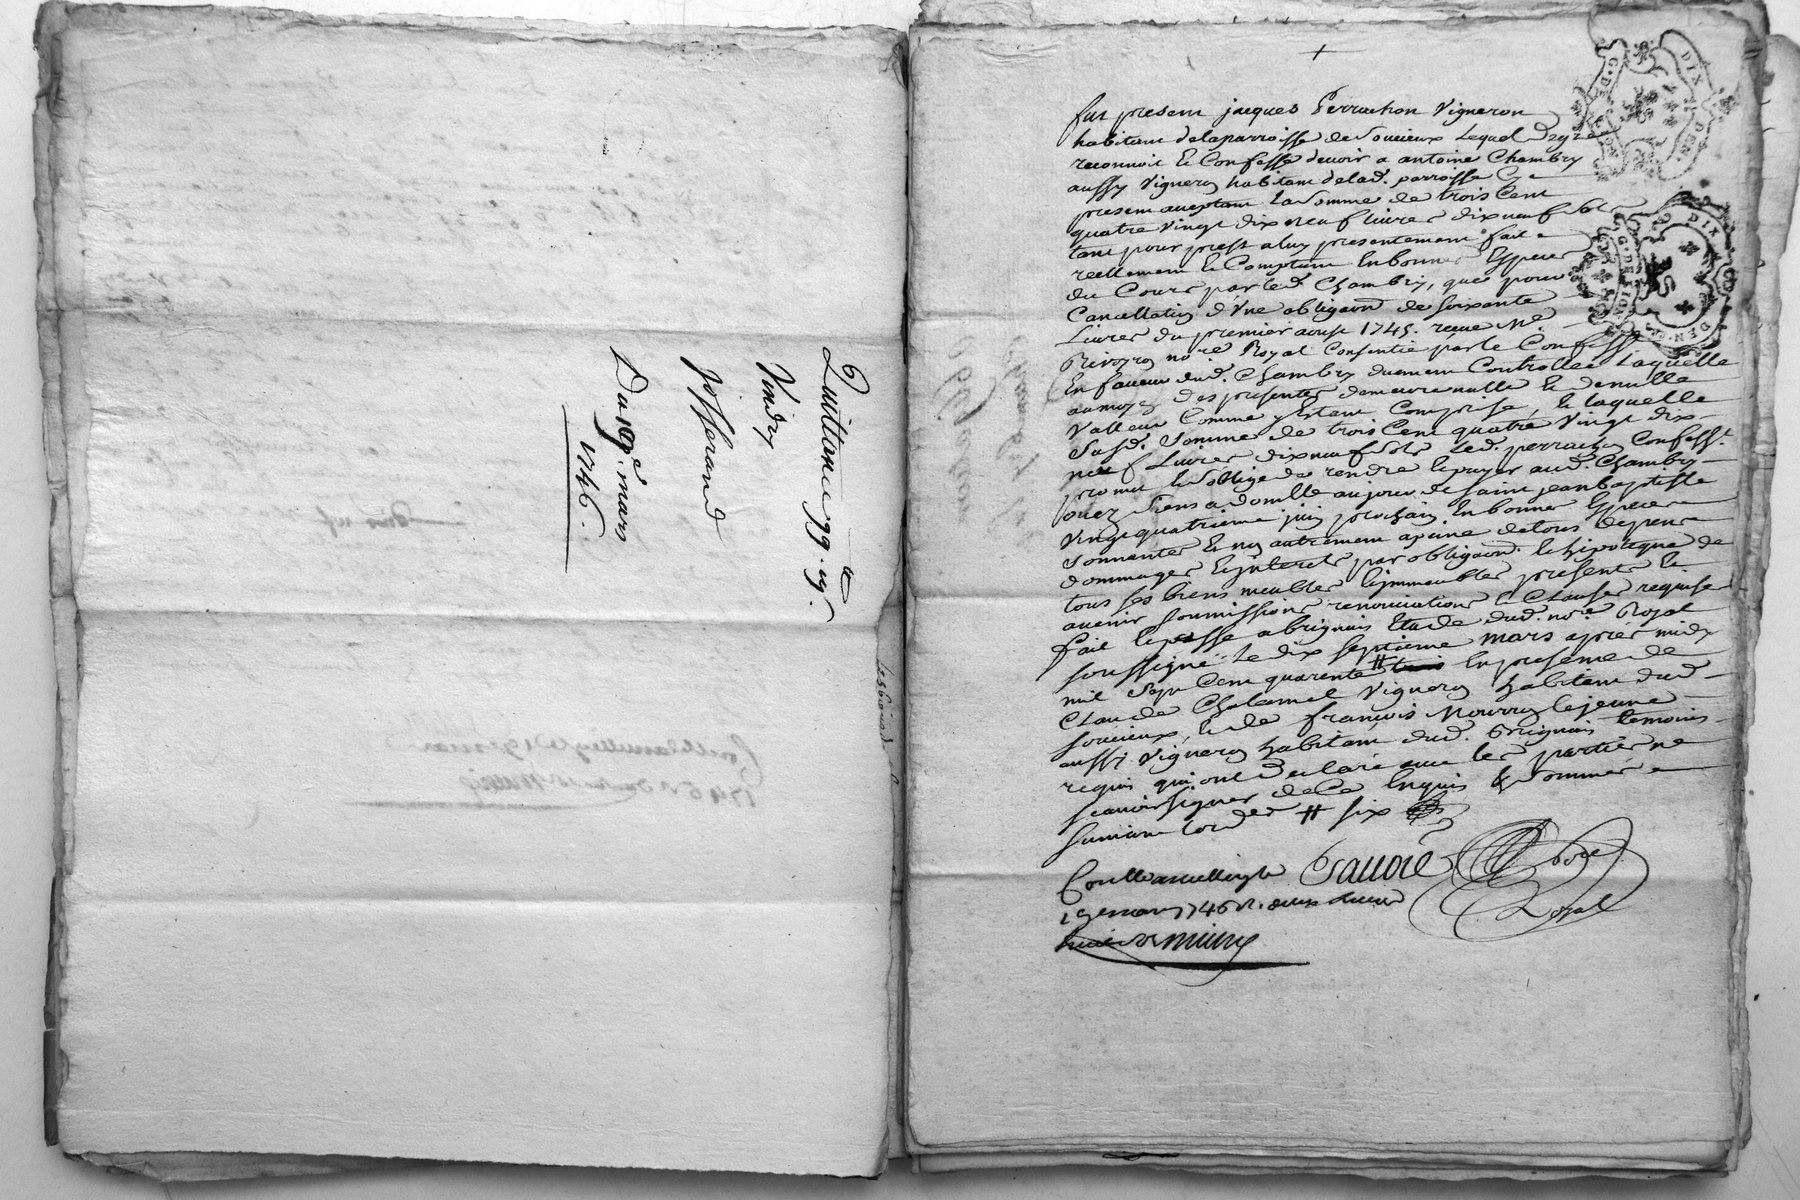 Quittance 99.tt 19.s
Vindry
Jofferand
Du 19.e mars
1746.
fut present jacques Perrachon Vigneron
habitant delaparroisse de Soucieux Lequel De gre
reconnoit Et Confesse devoir a antoine Chambry
aussy Vigneron habitant delad. parroisse Cy
present aceptant La Somme de trois Cent
quatre Vingt dix neuf livres dix neuf sols
tant pour prest a luy presentement fait
reellement Et Comptant En bonnes Especes
du Cours par led. Chambry, que pour
Cancellation d'Une obligaon de soixante
Livres du premier aoust 1745. receue Me
nore Royal Consentie par le Confess
En faveur dud. Chambry duement Controllee Laquelle
au moyen des presentes demeure nulle Et de nulle
Valleur Comme y Estant Comprise, Et laquelle
Susd. Somme de trois Cent quatre Vingt dix
neuf Livres dix neuf sols Led. perrachon Confesst.
promet Et S'oblige de rendre Et payer aud. Chambry
ou ez Siens a domille au jour de saint jean baptiste
Vingt quatrieme juin prochain En bonnes Especes
Sonnantes Et non autrement a peine de tous depens
dommages Et jnterets par obligaon Et hipoteque de
tous ses biens meubles Et jmmeubles presents Et
avenir soumissions renonciations Et Clauses requises
fait Et passé a brignais Etude dud. nore Royal
soussigné Le dix septieme mars aprés midy
mil Sept Cent quarente # En presence de
Claude Chalamel Vigneron habitant dud.
soucieux, Et de françois Mourron Le jeune
aussy Vigneron habitant dud. Brignais temoins
requis qui ont Declaré avec les parties ne
scavoir signer de Ce Enquis & Sommés
suivant Lordce # six
Controllé a
19e mars 1746 R. deux Livres
nore
Royal
G. DE LION
DIX DEN.
G. DE LION
DIX DEN.